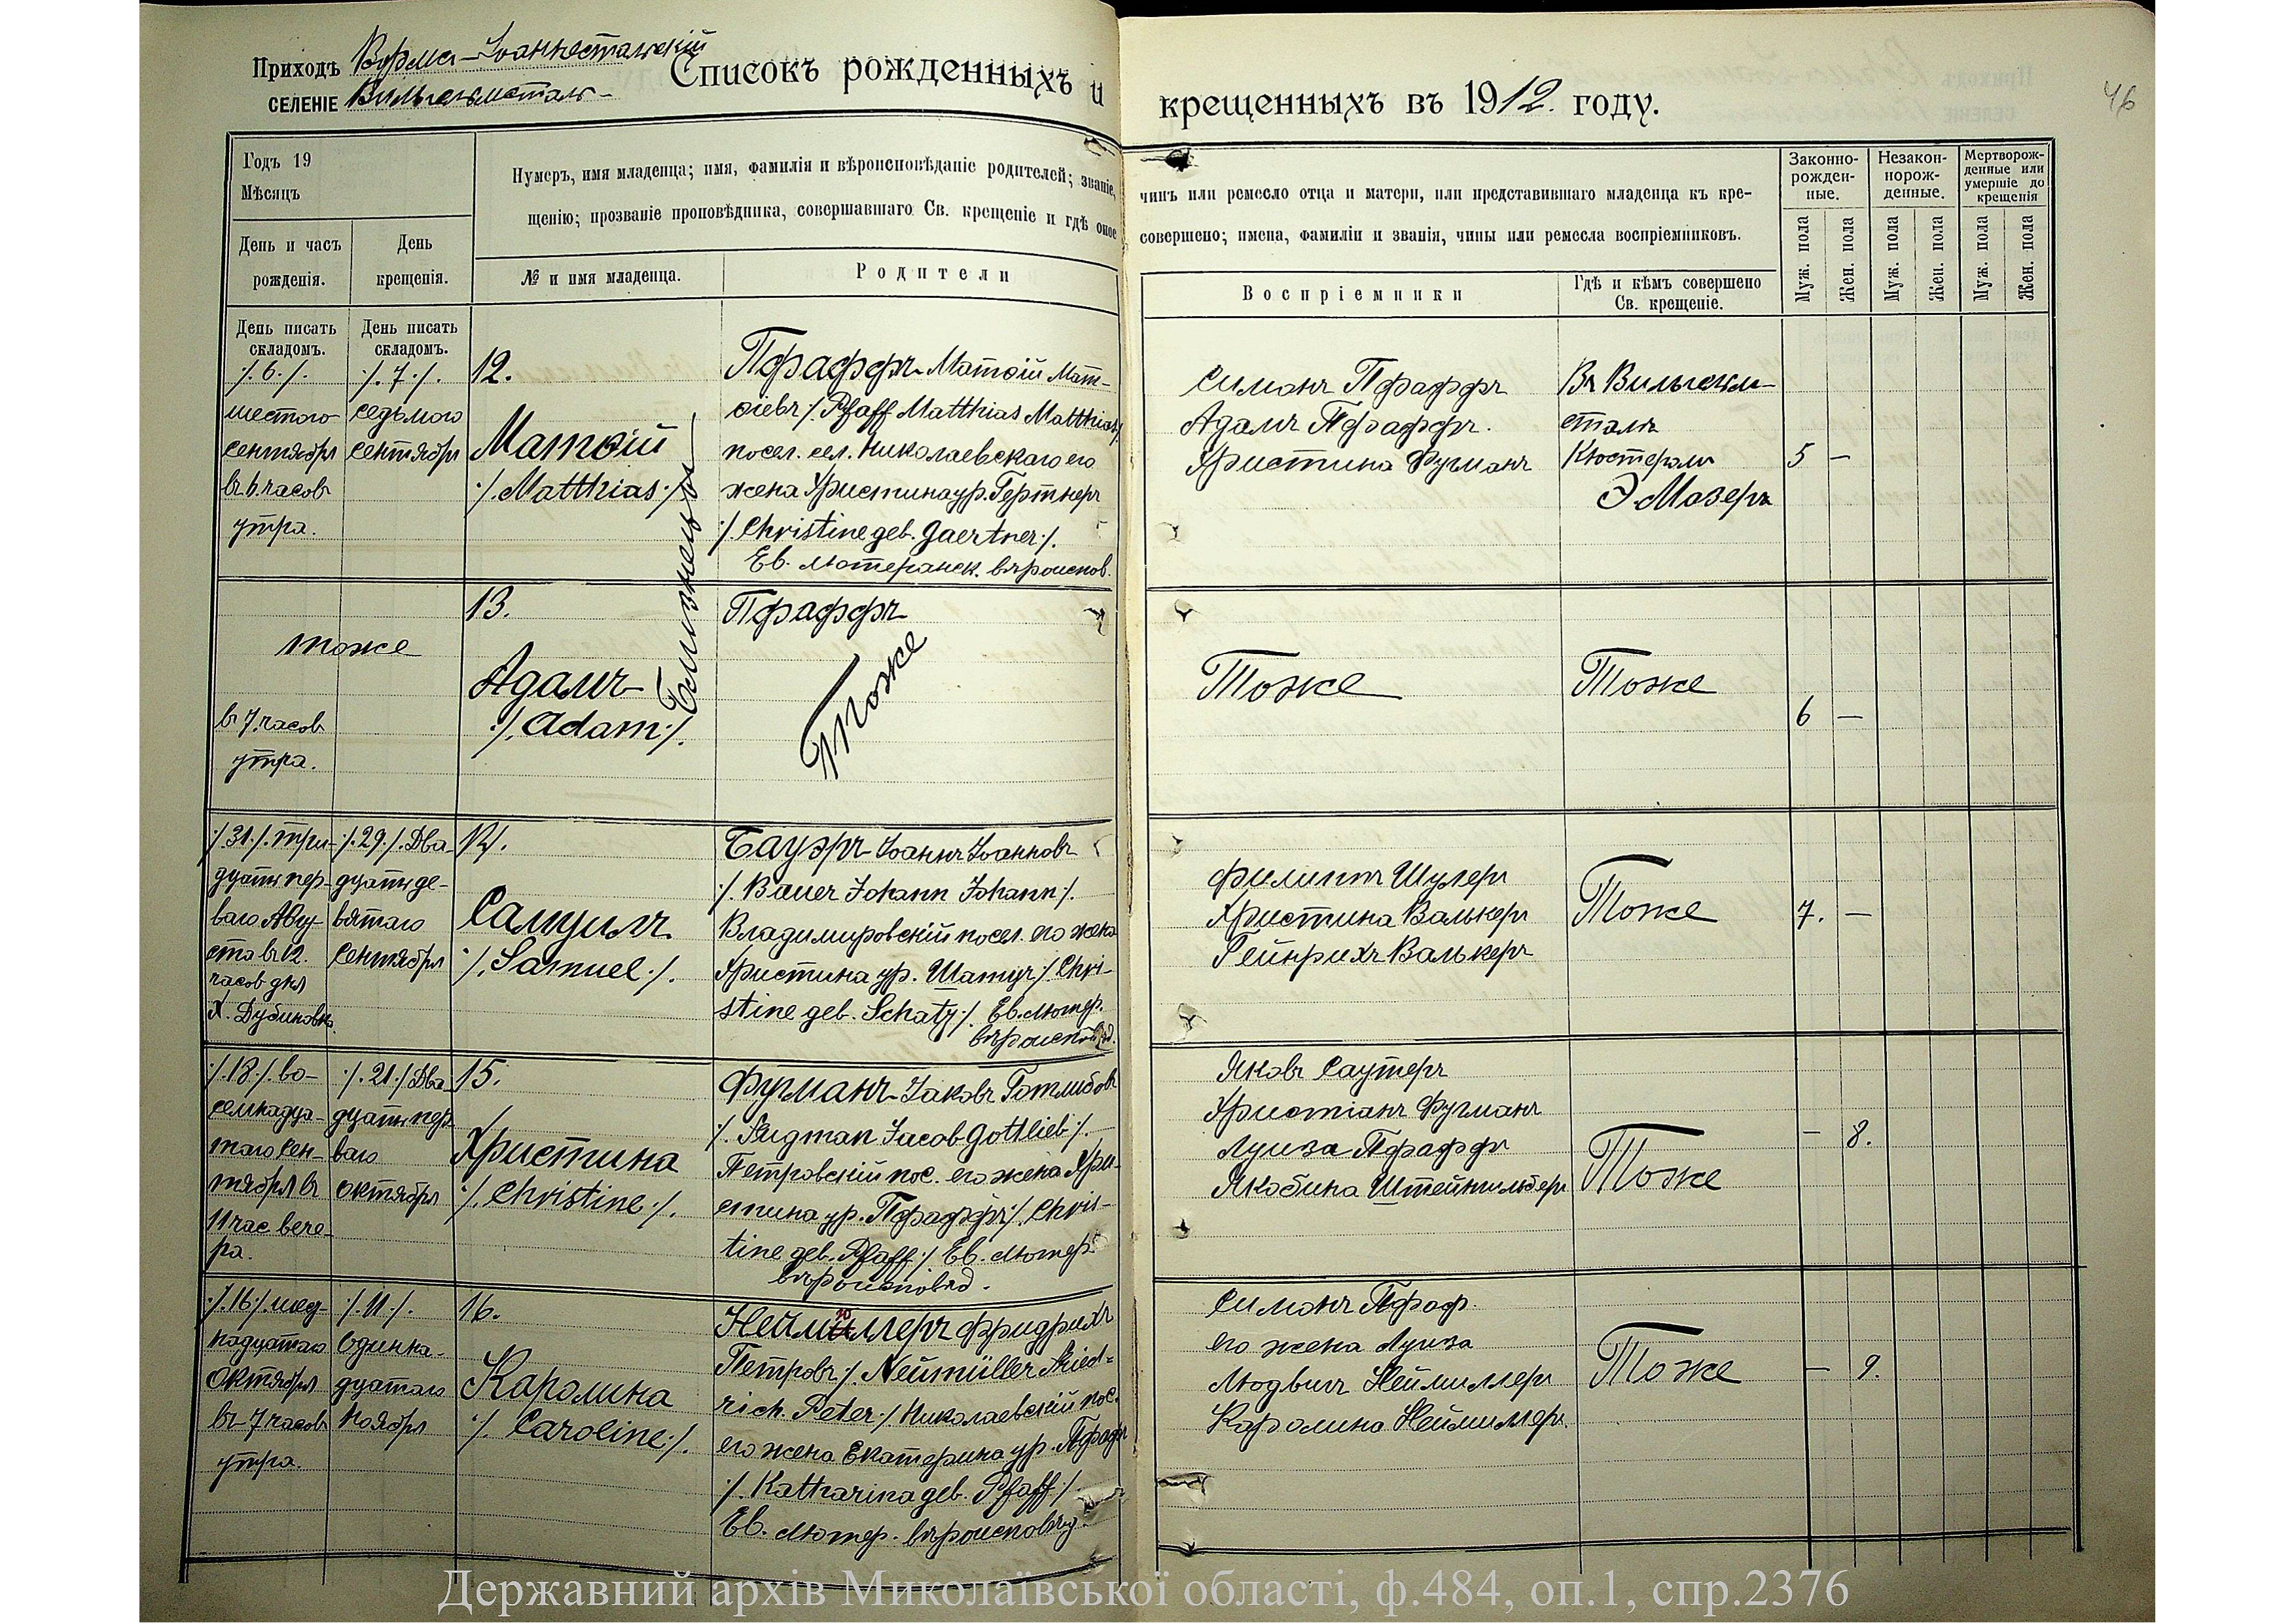 Приходъ Вормс-Іоаннестальскій
селеніе Вильгельмсталь
Списокъ рожденныхъ и крещенныхъ въ 1912. году.
46
Годъ 19
Мѣсяцъ
День и часъ рожденія.
День крещенія.
Нумеръ, имя младенца; имя, фамилія и вѣроисповѣданіе родителей; званіе, чинъ или ремесло отца и матери, или представившаго младенца къ кре-
щенію; прозваніе проповѣдника, совершавшаго Св. крещеніе и гдѣ оное совершено; имена, фамиліи и званія, чины или ремесла воспріемниковъ.
№ и имя младенца.
Родители
Воспріемники
Гдѣ и кѣмъ совершено
Св. крещеніе.
Законно-
рожден-
ные.
Незакон-
норож-
денные.
Мертворож-
денные или
умершіе до
крещенія
Муж. пола
Жен. пола
Муж. пола
Жен. пола
Муж. пола
Жен. пола
День писать
складомъ.
День писать
складомъ.
/.6./.
шестого
сентября
въ 6. часов
утра.
/.7./.
седьмого
сентября
12.
Матѳій
/.Matthias./
Близнецы
Пфаффъ Матѳій Мат-
ѳіевъ /.Pfaff Matthias Matthias/
посел. сел. Николаевскаго его
жена Христина ур. Гертнеръ
/.Christine geb. Gaertner./.
Ев. лютеранск. вѣроиспов.
Симонъ Пфаффъ
Адамъ Пфаффъ.
Христина Фугманъ
Въ Вильгельм-
сталѣ
Кюстеромъ
Э. Мозеръ
5 —
тоже
въ 7. часов
утра.
13.
Адамъ
/.Adam./.
Пфаффъ
Тоже
Тоже
Тоже
6 —
/.31./. три-
дцать пер-
ваго Авгу-
ста въ 12.
часов дня
Х. Дубиновка.
/.29./. Два-
дцать де-
вятаго
сентября
14.
Самуилъ
/.Samuel./.
Бауэръ Іоаннъ Іоанновъ
/.Bauer Johann Johann/.
Владимировскій посел. его жена
Христина ур. Шатцъ /.Chri-
stine geb. Schatz/. Ев. лютер.
вѣроисповѣд.
Филиппъ Шулеръ
Христина Валькеръ
Гейнрихъ Валькеръ
Тоже
7. —
/.18./. во-
семнадца-
таго сен-
тября въ
11 час. вече-
ра.
/.21./ Два-
дцать пер-
ваго
октября
15.
Христина
/.Christine./.
Фугманъ Іаковъ Готлибовъ
/.Fugman Jacob Gottlieb/.
Петровскій пос. его жена Хри-
стина ур. Пфаффъ /.Chris-
tine geb. Pfaff/ Ев. лютер.
вѣроисповѣд.
Яковъ Саутеръ
Христіанъ Фугманъ
Луиза Пфаффъ
Якобина Штейнгильберъ
Тоже
— 8.
/.16./. шест-
надцатаго
Октября
въ 7 часовъ
утра.
/.11./.
Одинна-
дцатаго
Ноября
16.
Каролина
/.Caroline/.
Неймюллеръ Фридрихъ
Петровъ /.Neumüller Fried-
rich Peter./ Николаевскій пос.
его жена Екатерина ур. Пфаффъ
/.Katharina geb. Pfaff./
Ев. лютер. вѣроисповѣд.
Симонъ Пфаф.
его жена Луиза
Людвигъ Неймиллеръ
Каролина Неймиллеръ.
Тоже
— 9.
Державний архів Миколаївської області, ф.484, оп.1, спр.2376